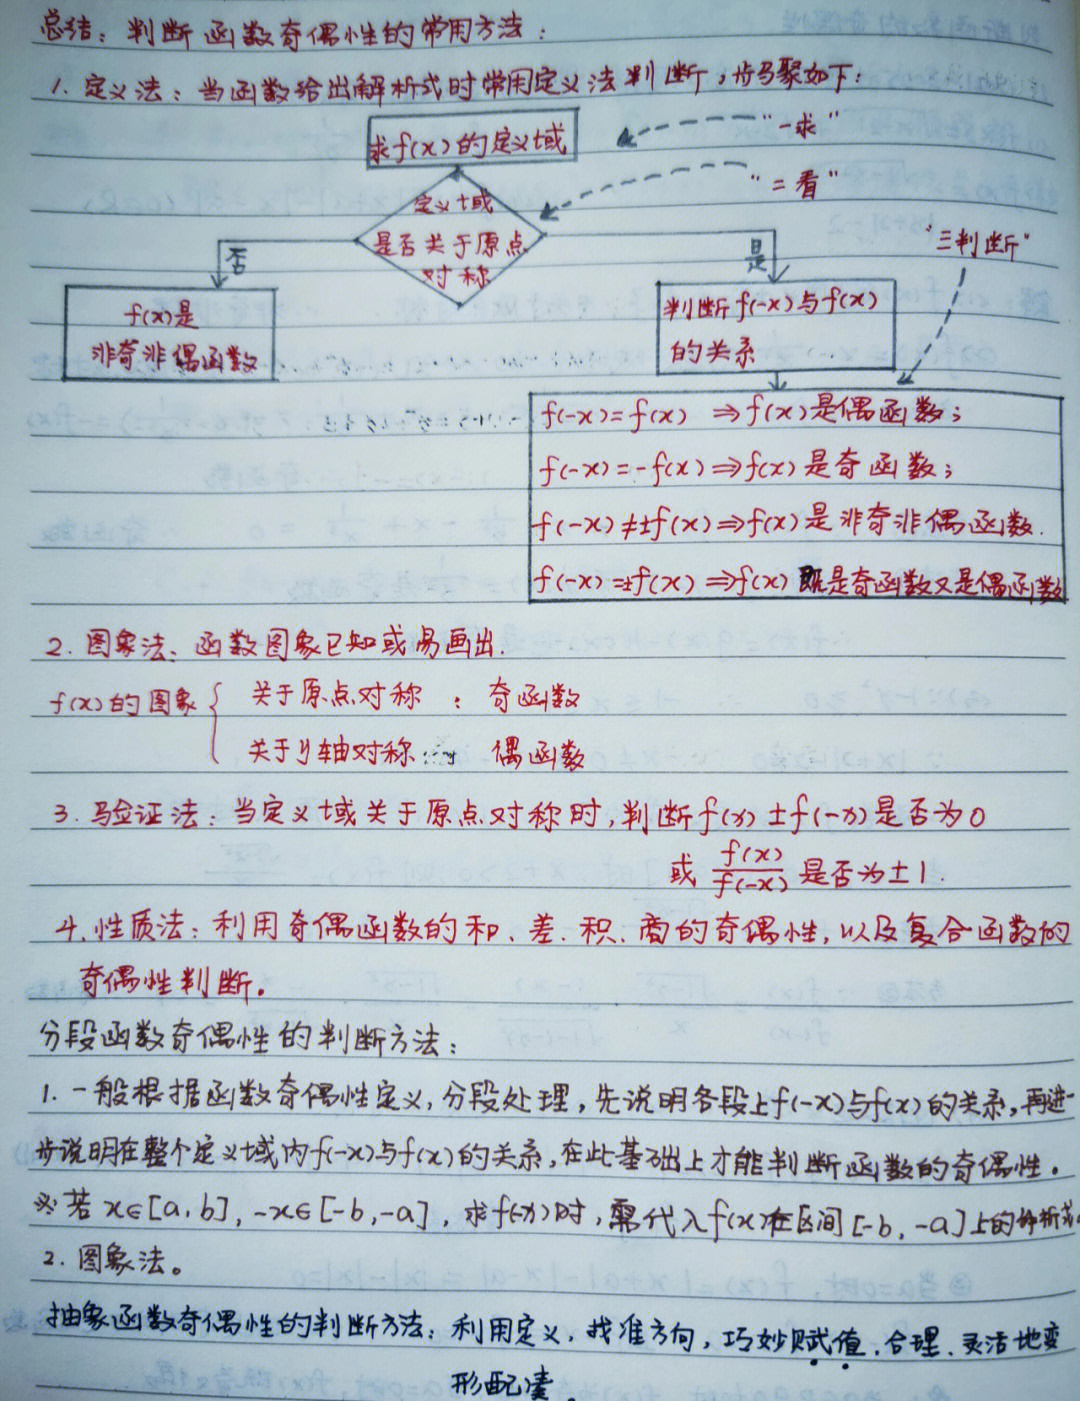 总结：判断函数奇偶性的常用方法：
1. 定义法：当函数给出解析式时常用定义法判断，步骤如下：
求f(x)的定义域
"一求"
定义域
是否关于原点
对称
"二看"
否
是
"三判断"
f(x)是
非奇非偶函数
判断f(-x)与f(x)
的关系
f(-x)=f(x) ⇒f(x)是偶函数；
f(-x)=-f(x)⇒f(x)是奇函数；
f(-x)≠±f(x)⇒f(x)是非奇非偶函数.
f(-x)=±f(x)⇒f(x)既是奇函数又是偶函数
2. 图象法、函数图象已知或易画出.
f(x)的图象{ 关于原点对称：奇函数
关于y轴对称：偶函数
3. 验证法：当定义域关于原点对称时，判断f(x)±f(-x)是否为0
或 f(x)/f(-x) 是否为±1
4. 性质法：利用奇偶函数的和、差、积、商的奇偶性，以及复合函数的
奇偶性判断。
分段函数奇偶性的判断方法：
1. 一般根据函数奇偶性定义，分段处理，先说明各段上f(-x)与f(x)的关系，再进一
步说明在整个定义域内f(-x)与f(x)的关系，在此基础上才能判断函数的奇偶性。
※若x∈[a,b]，-x∈[-b,-a]，求f(-x)时，需代入f(x)在区间[-b,-a]上的解析式。
2. 图象法。
抽象函数奇偶性的判断方法：利用定义，找准方向，巧妙赋值，合理、灵活地变
形配凑。